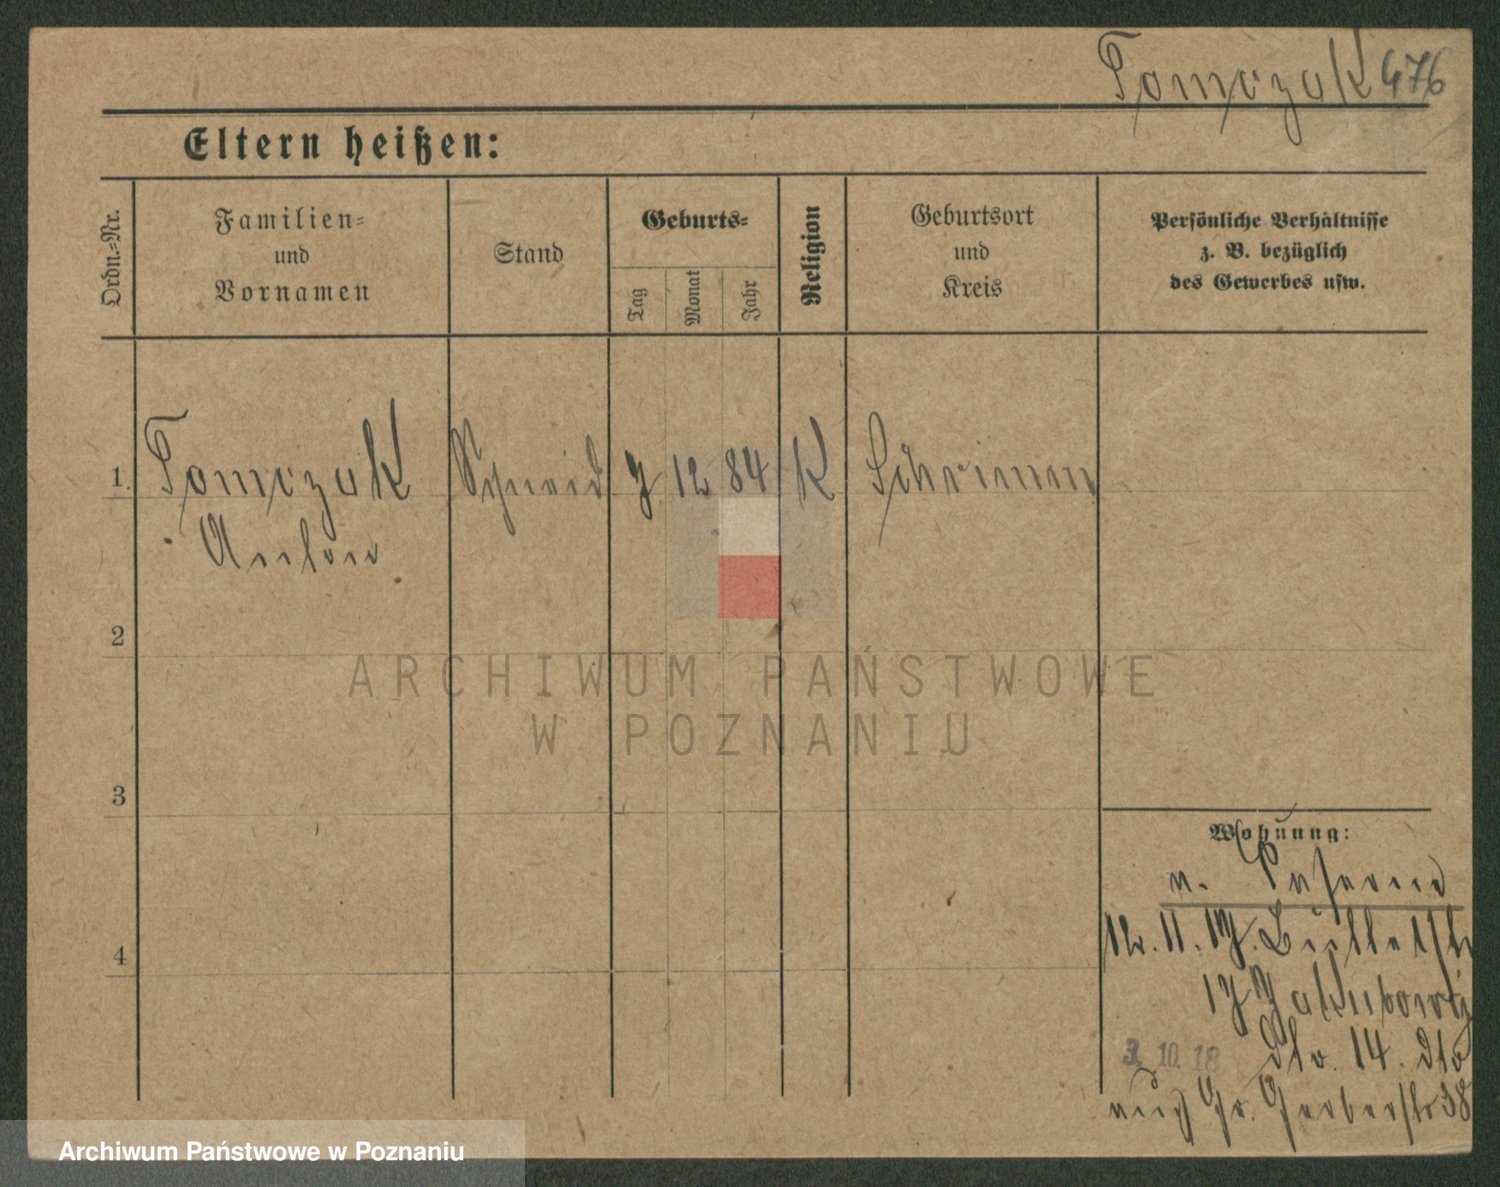 Tomczak 476
Eltern heißen:
Ordn.-Nr.
Familien-
und
Vornamen
Stand
Geburts-
Tag
Monat
Jahr
Religion
Geburtsort
und
Kreis
Persönliche Verhältnisse
z. B. bezüglich
des Gewerbes usw.
1. Tomczak Schneid 7 12 84 K Schrimm
Anton
2
3
4
Wohnung:
n.
12. 11. 17. Büttelstr
17 Jakubowicz
3. 10. 18 dto. 14. dto
nach Gr. Gerberstr 38
ARCHIWUM PAŃSTWOWE
W POZNANIU
Archiwum Państwowe w Poznaniu